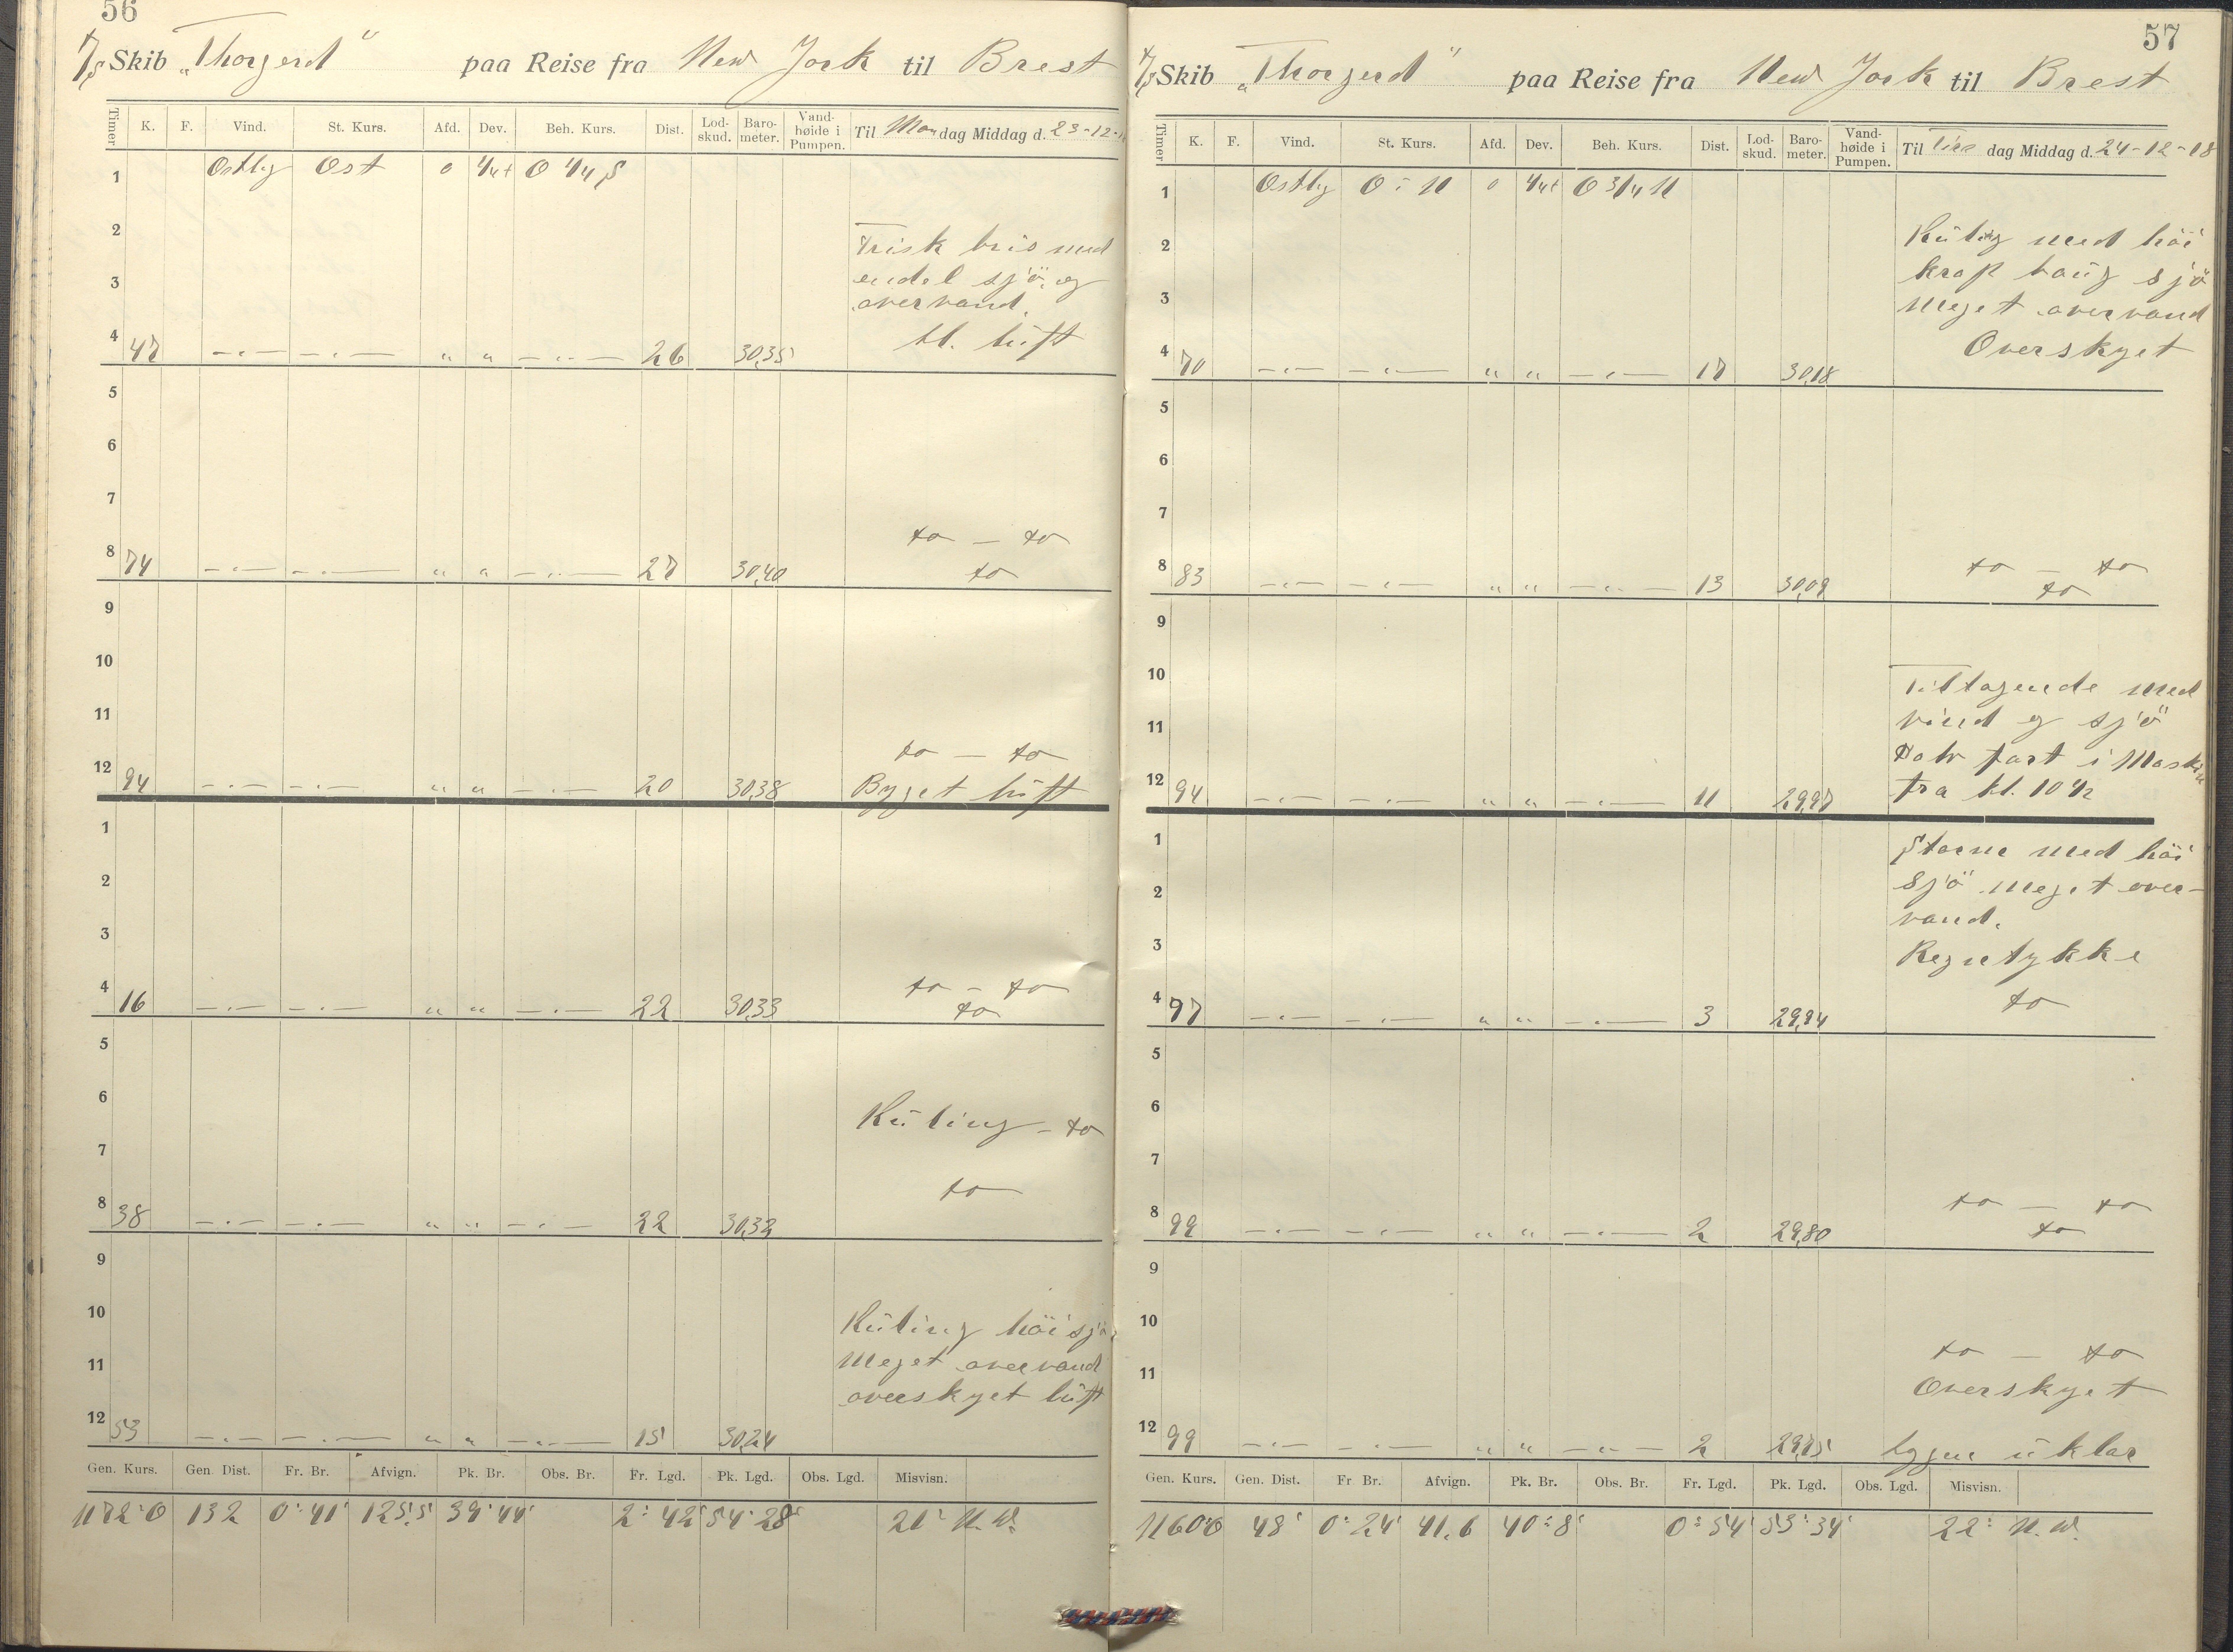 56
T/S Skib „Thorgerd" paa Reise fra New York til Brest
Timer K. F. Vind. St. Kurs. Afd. Dev. Beh. Kurs. Dist. Lod-skud. Baro-meter. Vand-høide i Pumpen. Til Mandag Middag d. 23-12-
1 Ostlig Ost 0 1/4+ O 1/4 S
2 Frisk bris med
3 endel sjö, og
overvand.
4 47 —"— —"— " " —"— 26 30,35 kl. lüft
5
6
7
to — to
8 74 —"— —"— " " —"— 27 30,40 to
9
10
11
to — to
12 94 —"— —"— " " —"— 20 30,38 Byget lüft
1
2
3
to — to
4 16 —"— —"— " " —"— 22 30,33 to
5
6 Küling – to
7
to
8 38 —"— —"— " " —"— 22 30,32
9
10 Küling höi sjö
11 meget overvand
overskyet lüft
12 53 —"— —"— " " —"— 15 30,24
Gen. Kurs. Gen. Dist. Fr. Br. Afvign. Pk. Br. Obs. Br. Fr. Lgd. Pk. Lgd. Obs. Lgd. Misvisn.
N72°O 132 0°41' 125,5 39°44' 2°42' 54°28' 21° N.W.
57
T/S Skib „Thorgerd" paa Reise fra New York til Brest
Timer K. F. Vind. St. Kurs. Afd. Dev. Beh. Kurs. Dist. Lod-skud. Baro-meter. Vand-høide i Pumpen. Til Tirsdag Middag d. 24-12-18
1 Ostlig O i N 0 1/4+ O 3/4 N
2 Küling med höi
krap baug sjö
3 meget overvand
Overskyet
4 70 —"— —"— " " —"— 17 30,18
5
6
7
to — to
8 83 —"— —"— " " —"— 13 30,09 to
9
10 Tiltagende med
11 vind og sjö
Halv fart i Maskin
12 94 —"— —"— " " —"— 11 29,97 fra kl. 10 1/2
1 Storm med höi
2 sjö meget over-
vand.
3 Regntykke
4 97 —"— —"— " " —"— 3 29,84 to
5
6
7
to — to
8 99 —"— —"— " " —"— 2 29,80 to
9
10
to — to
11 Overskyet
12 99 —"— —"— " " —"— 2 29,75 üklar
Gen. Kurs. Gen. Dist. Fr Br. Afvign. Pk. Br. Obs. Br. Fr. Lgd. Pk. Lgd. Obs. Lgd. Misvisn.
N60°O 48' 0°24' 41,6 40°8' 0°54' 53°34' 22° N.W.